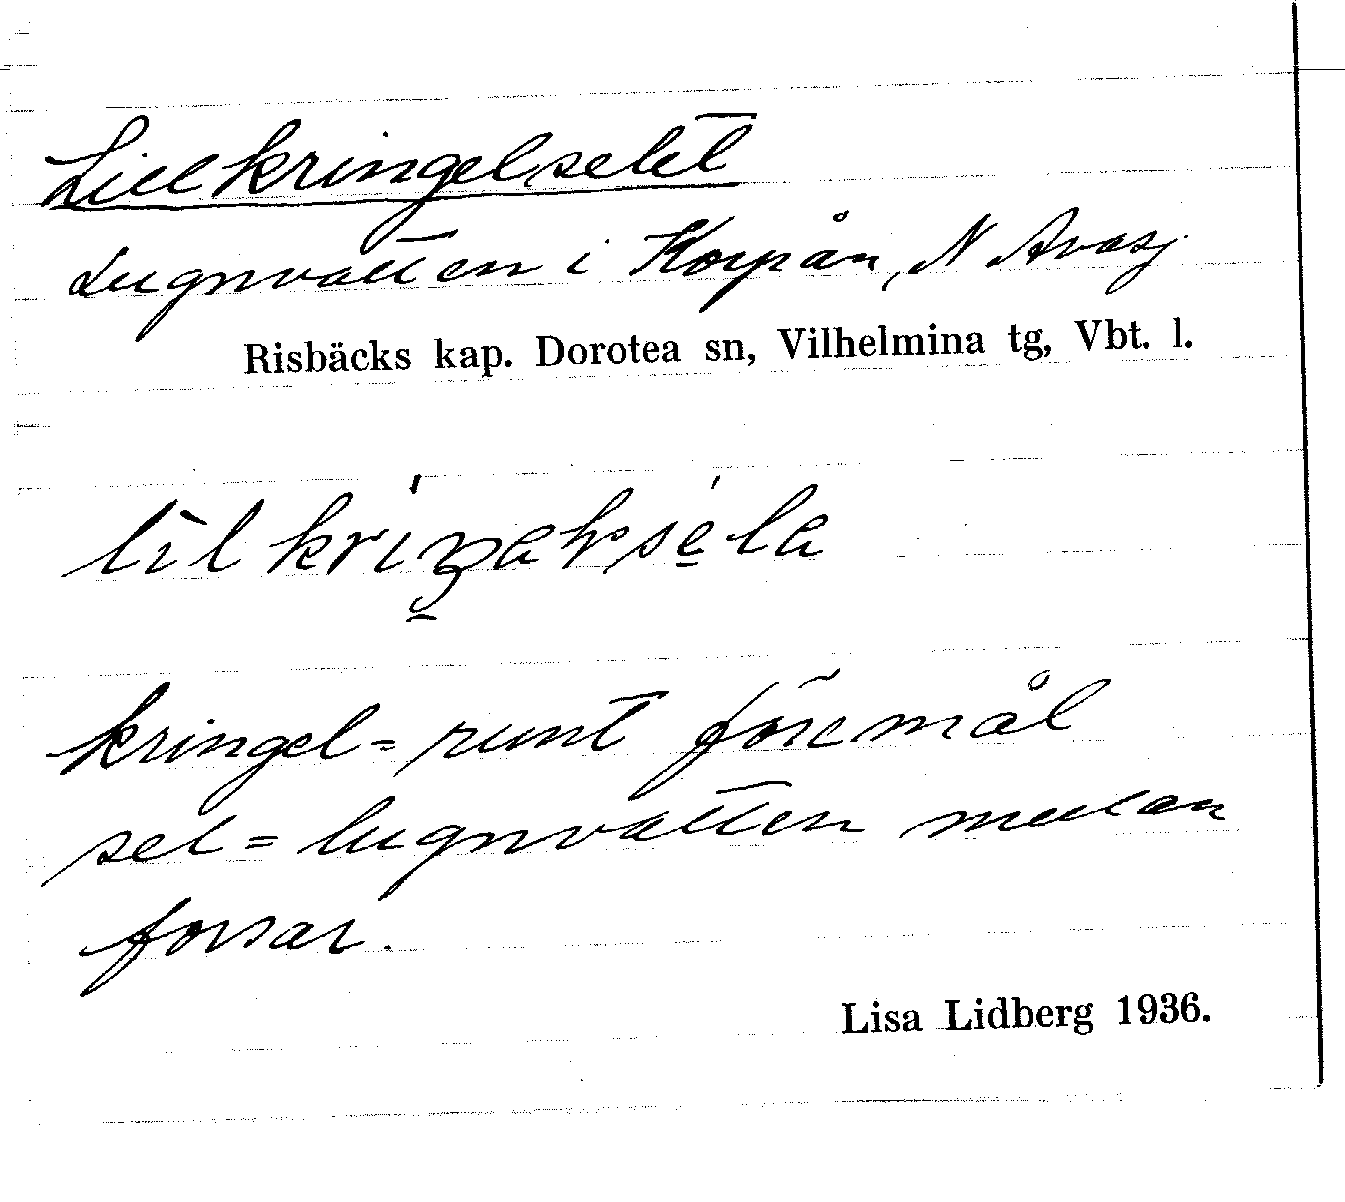 Lillkringelselet
Lugnvatten i Korpån, N Avasj.
Risbäcks kap. Dorotea sn, Vilhelmina tg, Vbt. l.
kringel = runt föremål
sel = lugnvatten mellan
forsar.
Lisa Lidberg 1936.